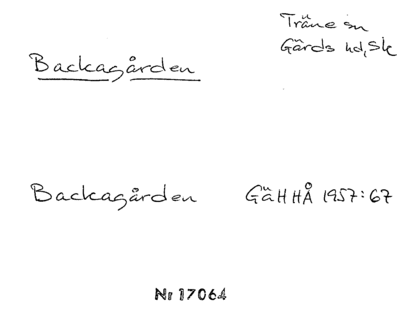 Träne sn
Gärds hd, Sk
Backagården
Backagården GäHHÅ 1957:67
Nr 17064